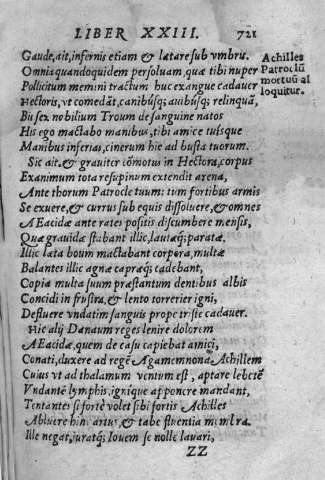 LIBER XXIII. 721
Gaude, ait, infernis etiam & lætare sub vmbris.
Omnia quandoquidem persoluam, quæ tibi nuper
Pollicitum memini tractum huc exangue cadauer
Hectoris, vt comedāt, canibúsq; auibúsq; relinquā,
Bis sex nobilium Troum de sanguine natos
His ego mactabo manibus, tibi amice tuisque
Manibus inferias, cinerum hic ad busta tuorum.
Sic ait. & grauiter cōmotus in Hectora, corpus
Exanimum tota resupinum extendit arena,
Ante thorum Patrocle tuum: tum fortibus armis
Se exuere, & currus sub equis dissoluere, & omnes
AEacidæ ante rates positis discumbere mensis,
Quæ grauidæ stabant illic, lautæq; paratæ.
Illic lata boum mactabant corpora, multæ
Balantes illic agnæ capræq; cadebant,
Copia multa suum præstantum dentibus albis
Concidi in frustra, & lento torrerier igni,
Defluere vndatim sanguis prope triste cadauer.
Hic alij Danaum reges lenire dolorem
AEacidæ, quem de casu capiebat amici,
Conati, duxere ad regē Agamemnona Achillem
Cuius vt ad thalamum ventum est, aptare lebetē
Vndantē lymphis, ignique apponere mandant,
Tentantes si fortè volet sibi fortis Achilles
Abluere hinc artus, & tabe fluentia membra.
Ille negat, iuratq; Iouem se nolle lauari,
ZZ
Achilles
Patroclū
mortuū al
loquitur.